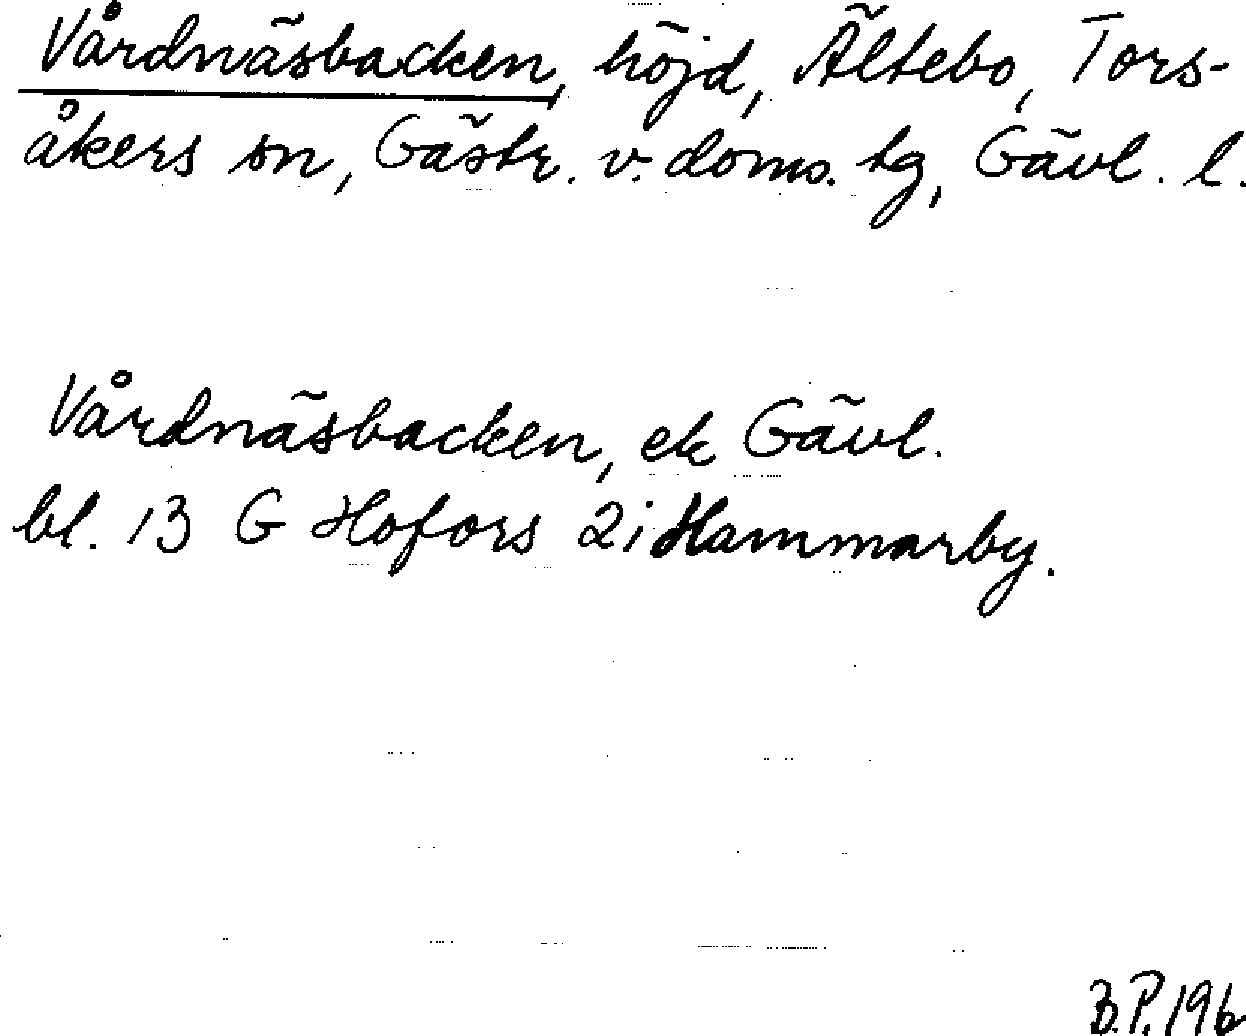 Vårdnäsbacken, höjd, Ältebo, Tors-
åkers sn, Gästr. v. doms. tg, Gävl. l.
Vårdnäsbacken, ek Gävl.
bl. 13 G Hofors 2i Hammarby.
B.P. 196